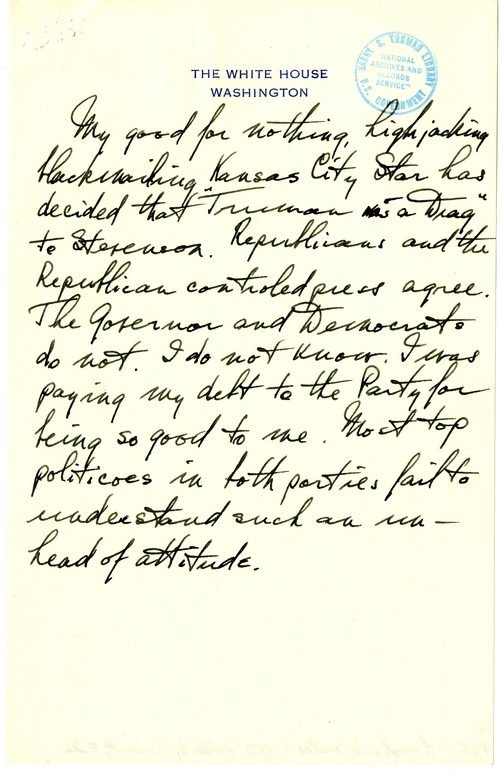 THE WHITE HOUSE
WASHINGTON
HARRY S. TRUMAN LIBRARY
"NATIONAL
ARCHIVES AND
RECORDS
SERVICE"
U.S. GOVERNMENT
My good for nothing, highjacking
blackmailing Kansas City Star has
decided that "Truman was a Drag"
to Stevenson. Republicans and the
Republican controled press agree.
The Governor and Democrats
do not. I do not know. I was
paying my debt to the Party for
being so good to me. Most top
politicoes in both parties fail to
understand such an un-
head of attitude.